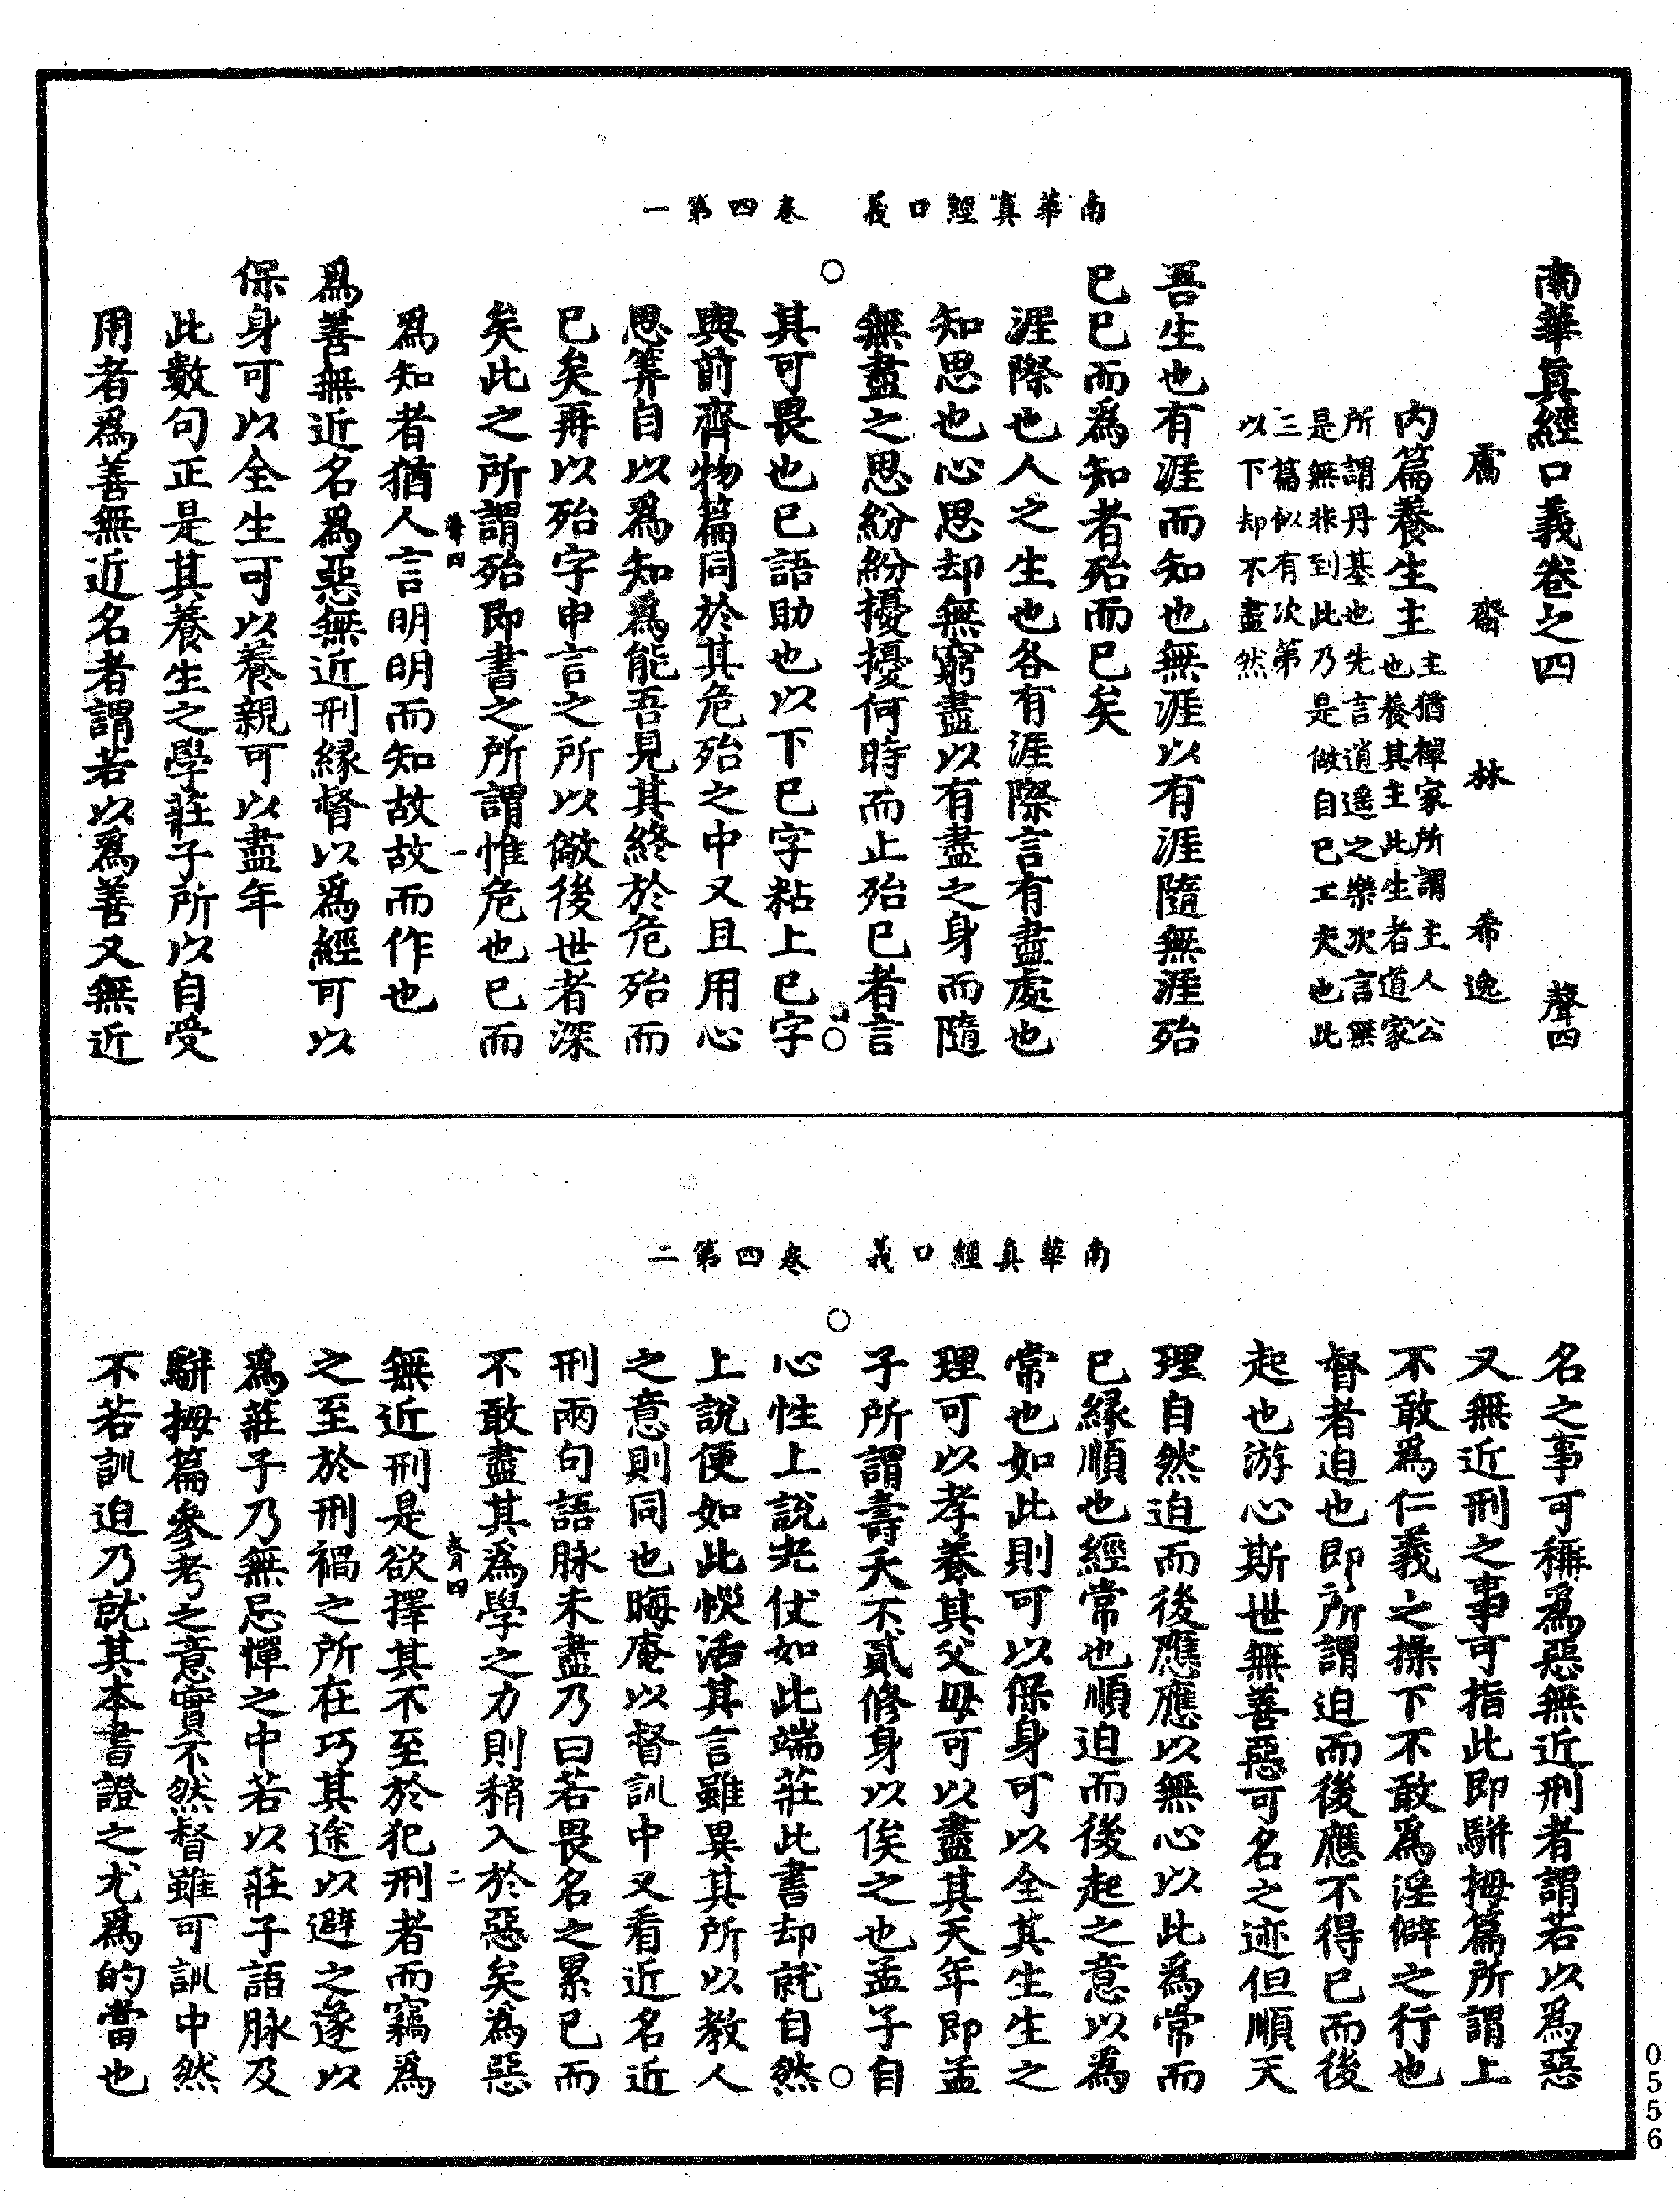 南華真經口義　卷四第一
南華真經口義卷之四　聲四
鬳齋林希逸
內篇養生主
主猶禪家所謂主人公
也養其主此生者道家
所謂丹基也先言逍遙之樂次言無
是無非到此乃是做自已工夫也此
三篇似有次第
以下却不盡然
吾生也有涯而知也無涯以有涯隨無涯殆
已已而爲知者殆而已矣
涯際也人之生也各有涯際言有盡處也
知思也心思却無窮盡以有盡之身而隨
無盡之思紛紛擾擾何時而止殆已者言
其可畏也已語助也以下已字粘上已字
與前齊物篇同於其危殆之中又且用心
思筭自以爲知爲能吾見其終於危殆而
已矣再以殆字申言之所以儆後世者深
矣此之所謂殆即書之所謂惟危也已而
聲四　一
爲知者猶人言明明而知故故而作也
爲善無近名爲惡無近刑緣督以爲經可以
保身可以全生可以養親可以盡年
此數句正是其養生之學莊子所以自受
用者爲善無近名者謂若以爲善又無近
南華真經口義　卷四第二
名之事可稱爲惡無近刑者謂若以爲惡
又無近刑之事可指此即駢拇篇所謂上
不敢爲仁義之操下不敢爲淫僻之行也
督者迫也即所謂迫而後應不得已而後
起也游心斯世無善惡可名之迹但順天
理自然迫而後應應以無心以此爲常而
已緣順也經常也順迫而後起之意以爲
常也如此則可以保身可以全其生生之
理可以孝養其父母可以盡其天年即孟
子所謂壽夭不貳修身以俟之也孟子自
心性上說老仗如此端莊此書却就自然
上說便如此惔活其言雖異其所以教人
之意則同也晦庵以督訓中又看近名近
刑兩句語脉未盡乃曰若畏名之累已而
不敢盡其爲學之力則稍入於惡矣爲惡
聲四　二
無近刑是欲擇其不至於犯刑者而竊爲
之至於刑禍之所在巧其途以避之遂以
爲莊子乃無忌憚之中若以莊子語脉及
駢拇篇參考之意實不然督雖可訓中然
不若訓迫乃就其本書證之尤爲的當也
0556